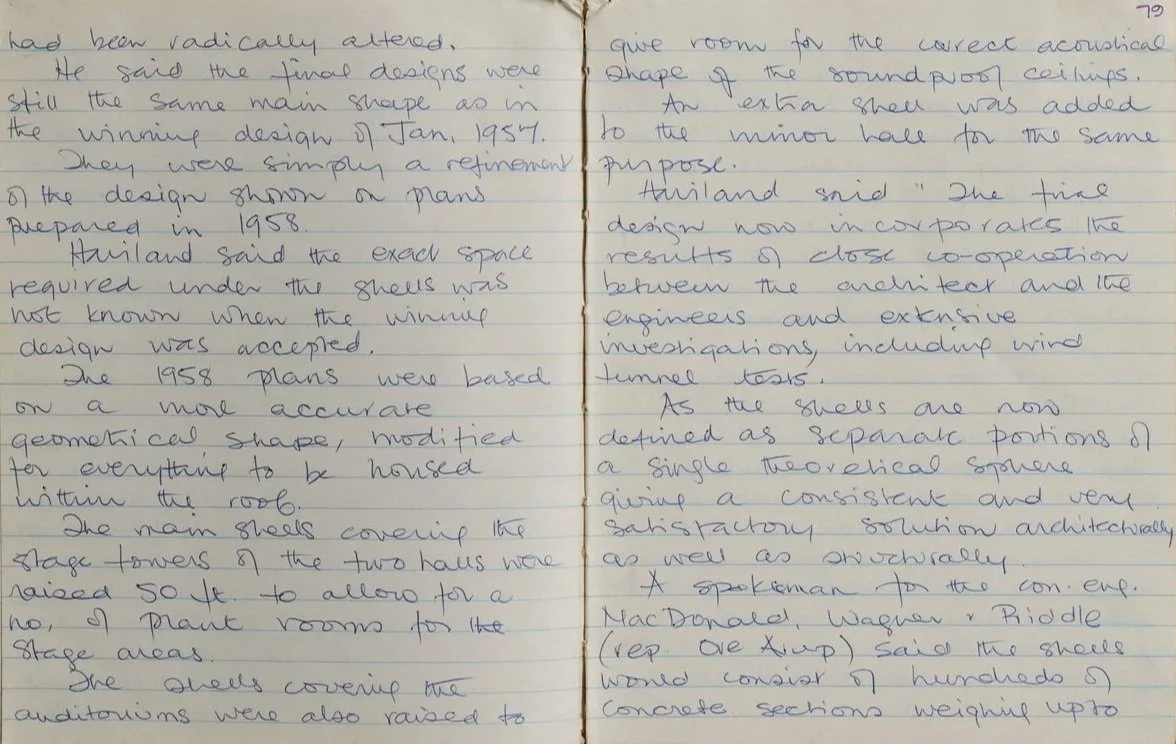 had been radically altered.
He said the final designs were
still the same main shape as in
the winning design of Jan, 1957.
They were simply a refinement
of the design shown on plans
prepared in 1958.
Haviland said the exact space
required under the shells was
not known when the winning
design was accepted.
The 1958 plans were based
on a more accurate
geometrical shape, modified
for everything to be housed
within the roof.
The main shells covering the
stage towers of the two halls were
raised 50 ft. to allow for a
no. of plant rooms for the
stage areas.
The shells covering the
auditoriums were also raised to
79
give room for the correct acoustical
shape of the soundproof ceilings.
An extra shell was added
to the minor hall for the same
purpose.
Haviland said "The final
design now incorporates the
results of close co-operation
between the architect and the
engineers and extensive
investigations, including wind
tunnel tests.
As the shells are now
defined as separate portions of
a single theoretical sphere
giving a consistent and very
satisfactory solution architecturally
as well as structurally.
A spokesman for the con. eng.
MacDonald, Wagner & Priddle
(rep. Ove Arup) said the shells
would consist of hundreds of
concrete sections weighing up to